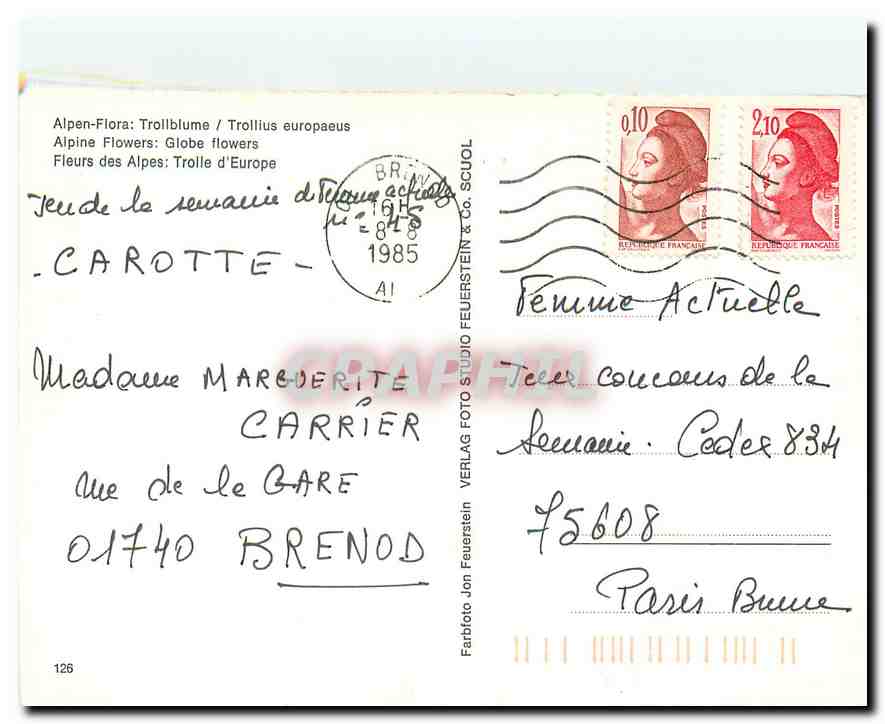 Alpen-Flora: Trollblume / Trollius europaeus
Alpine Flowers: Globe flowers
Fleurs des Alpes: Trolle d'Europe
Jeu de la semaine de Femme actuelle
n° 45
- CAROTTE -
Madame MARGUERITE
CARRIER
rue de la GARE
01740 BRENOD
126
BREN
16H
8-8
1985
AI
Farbfoto Jon Feuerstein VERLAG FOTO STUDIO FEUERSTEIN & Co. SCUOL
0,10
POSTES
REPUBLIQUE FRANÇAISE
2,10
POSTES
REPUBLIQUE FRANÇAISE
Femme Actuelle
Jeux concours de la
Semaine. Cedex 834
75608
Paris Brune
CPAPHIL